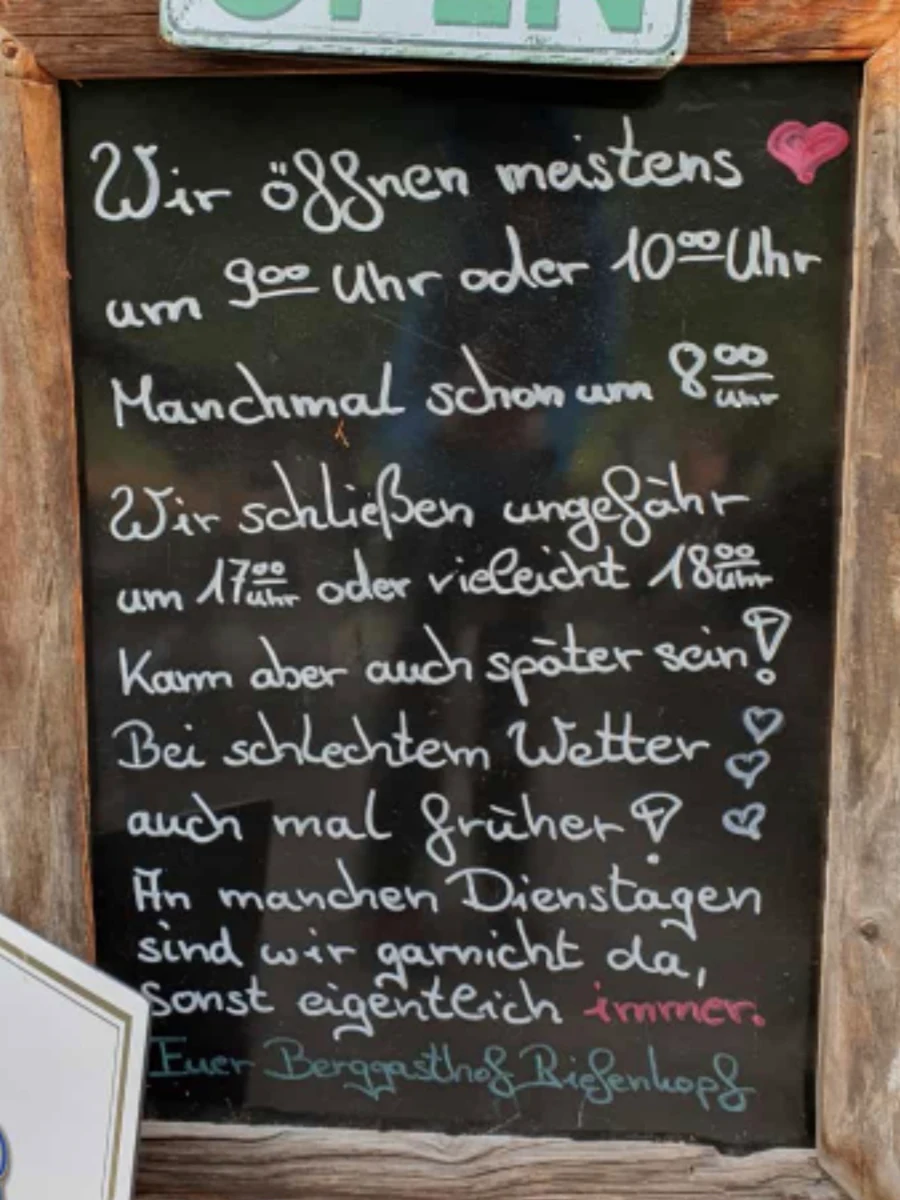 OPEN
Wir öffnen meistens
um 9⁰⁰ Uhr oder 10⁰⁰ Uhr
Manchmal schon um 8⁰⁰ Uhr
Wir schließen ungefähr
um 17⁰⁰ Uhr oder vieleicht 18⁰⁰ Uhr
Kann aber auch später sein!
Bei schlechtem Wetter
auch mal früher!
An manchen Dienstagen
sind wir garnicht da,
sonst eigentlich immer.
Euer Berggasthof Riefenkopf